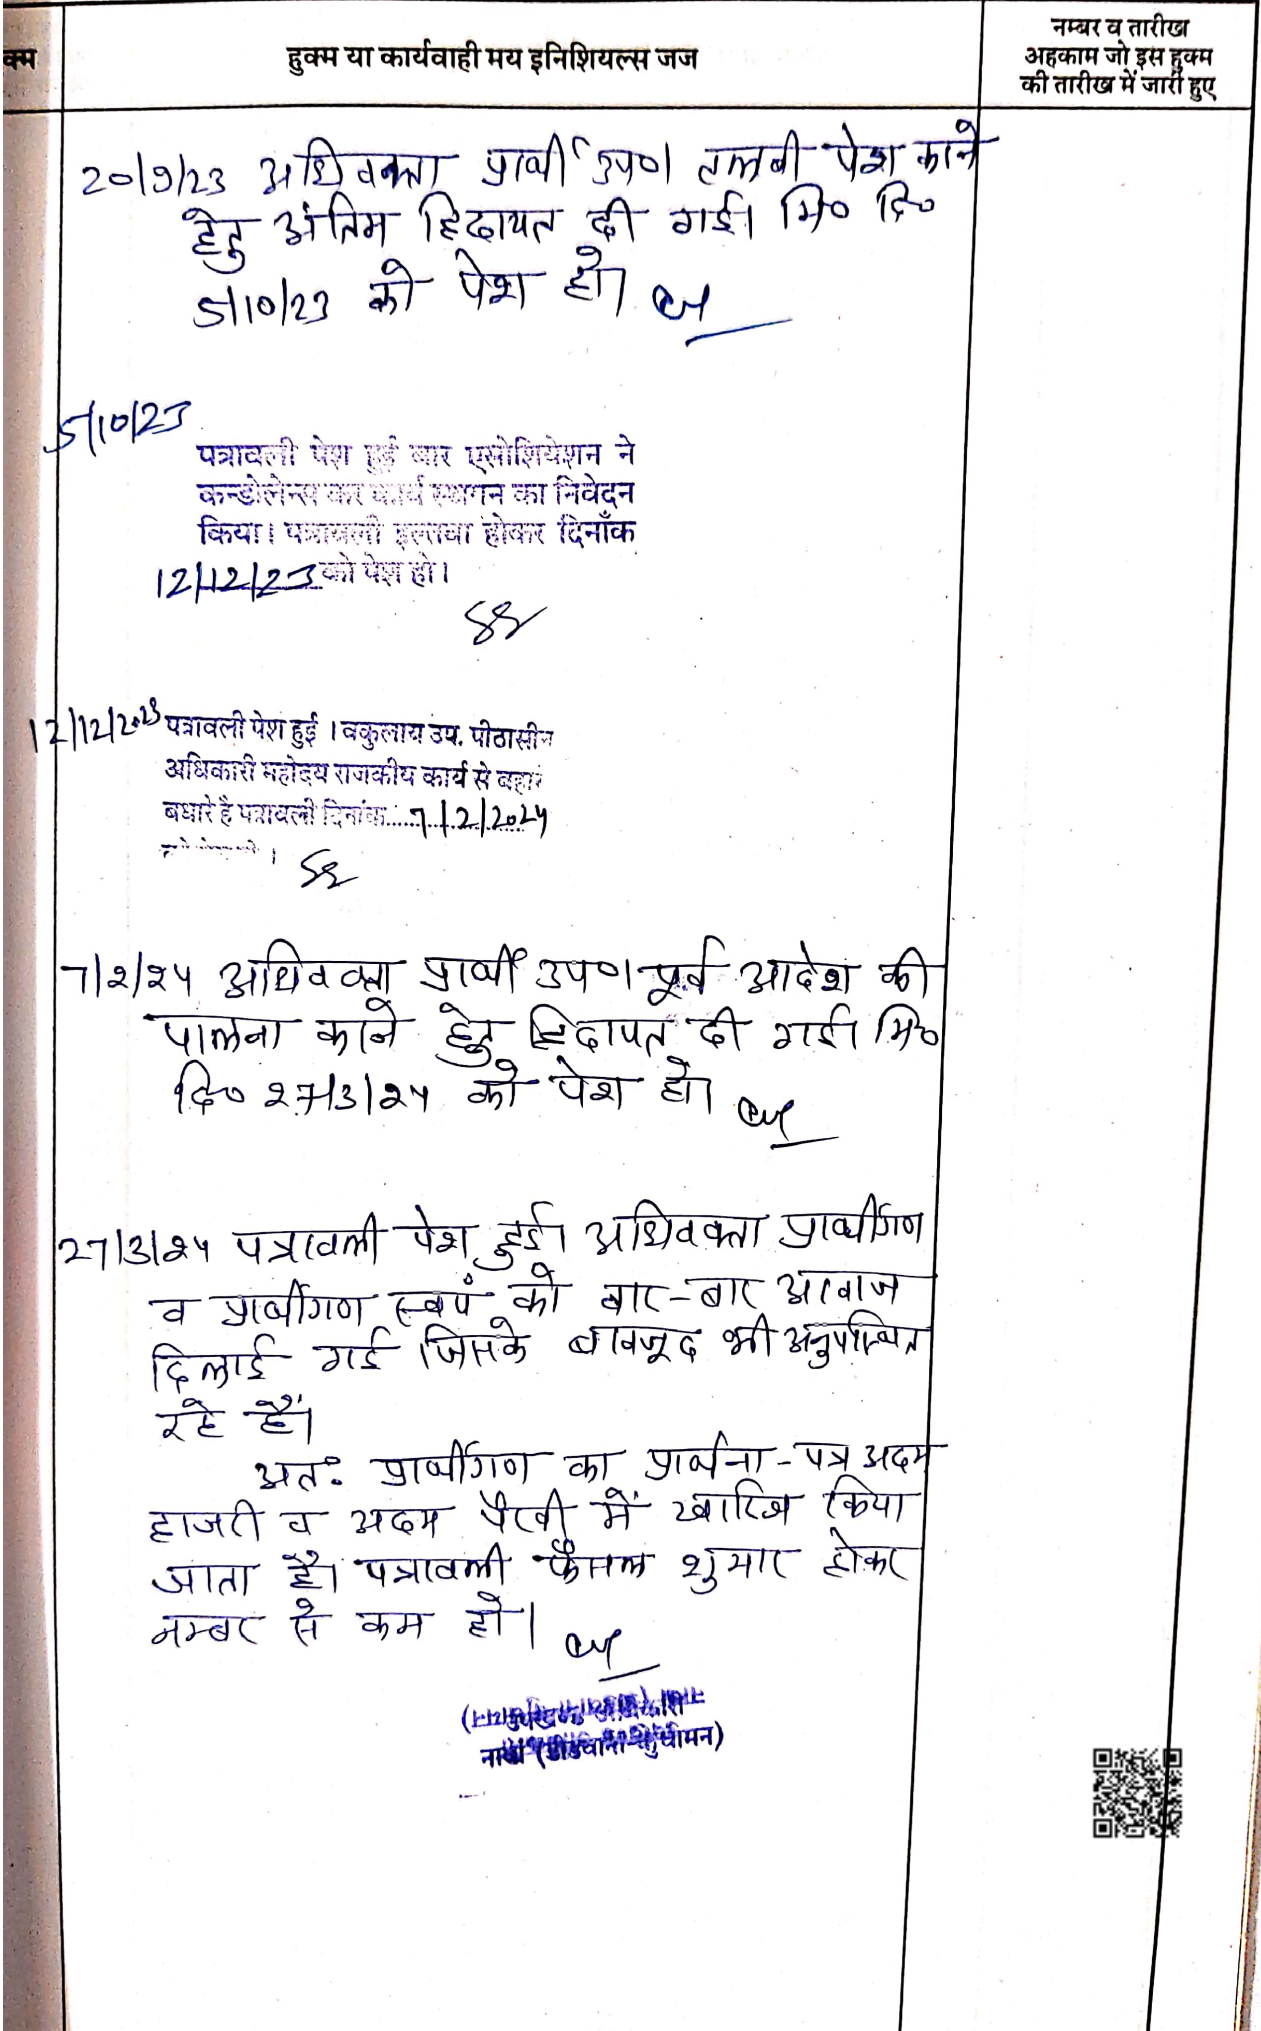 क्म
हुक्म या कार्यवाही मय इनिशियल्स जज
नम्बर व तारीख
अहकाम जो इस हुक्म
की तारीख में जारी हुए
20/9/23 अधिवक्ता प्रार्थी उप० तलबी पेश करने
हेतु अंतिम हिदायत दी गई। मि० दि०
5/10/23 को पेश हो।
5/10/23
पत्रावली पेश हुई बार एसोशियेशन ने
कन्डोलेन्स कर कार्य स्थगन का निवेदन
किया। पत्रावली इल्तवा होकर दिनाँक
12/12/23 को पेश हो।
12/12/2023 पत्रावली पेश हुई । वकुलाय उप. पीठासीन
अधिकारी महोदय राजकीय कार्य से बहार
बधारे है पत्रावली दिनांक......7/2/2024
7/2/24 अधिवक्ता प्रार्थी उप० पूर्व आदेश की
पालना करने हेतु हिदायत दी गई। मि०
दि० 27/3/24 को पेश हो।
27/3/24 पत्रावली पेश हुई। अधिवक्ता प्रार्थीगण
व प्रार्थीगण स्वयं को बार-बार आवाज
दिलाई गई जिसके बावजूद भी अनुपस्थित
रहे हैं।
अतः प्रार्थीगण का प्रार्थना-पत्र अदम
हाजरी व अदम पैरवी में खारिज किया
जाता है। पत्रावली फैसल शुमार होकर
नम्बर से कम हो।